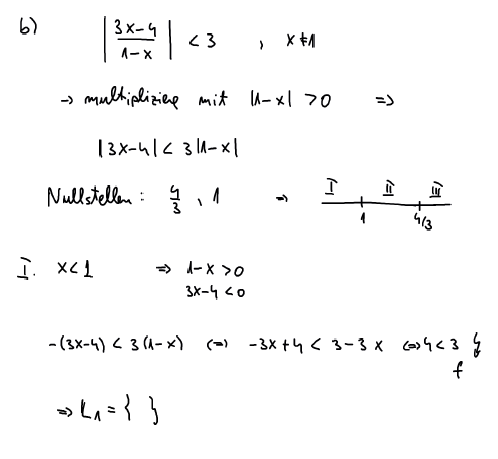 b) |3x-4 / 1-x| < 3 , x ≠ 1
→ multipliziere mit |1-x| > 0 ⇒
|3x-4| < 3|1-x|
Nullstellen: 4/3 , 1 ⇒ I II III
1 4/3
I. x<1 ⇒ 1-x > 0
3x-4 < 0
-(3x-4) < 3(1-x) ⇔ -3x+4 < 3-3x ⇔ 4<3 ↯
f
⇒ L₁ = { }